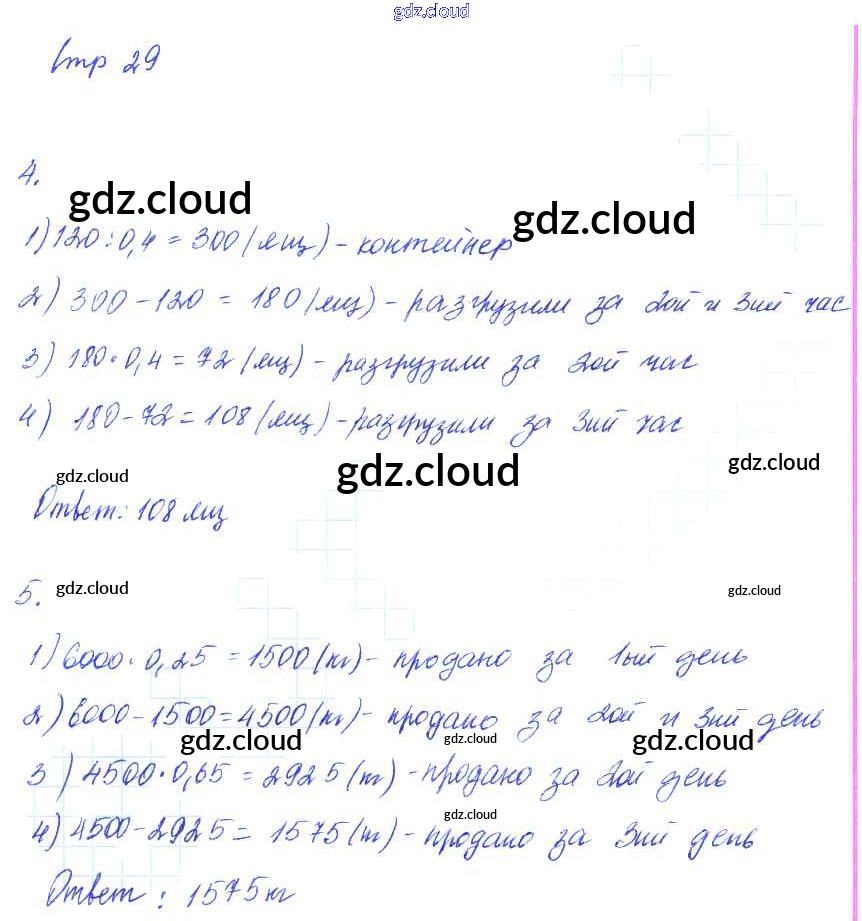 gdz.cloud
Стр 29
4.
gdz.cloud
gdz.cloud
1) 120 : 0,4 = 300 (ящ) - контейнер
2) 300 - 120 = 180 (ящ) - разгрузили за 2ой и 3ий час
3) 180 · 0,4 = 72 (ящ) - разгрузили за 2ой час
4) 180 - 72 = 108 (ящ) - разгрузили за 3ий час
gdz.cloud
gdz.cloud
gdz.cloud
Ответ: 108 ящ
5.
gdz.cloud
gdz.cloud
1) 6000 · 0,25 = 1500 (кг) - продано за 1ый день
2) 6000 - 1500 = 4500 (кг) - продано за 2ой и 3ий день
gdz.cloud
gdz.cloud
gdz.cloud
3) 4500 · 0,65 = 2925 (кг) - продано за 2ой день
gdz.cloud
4) 4500 - 2925 = 1575 (кг) - продано за 3ий день
Ответ : 1575 кг